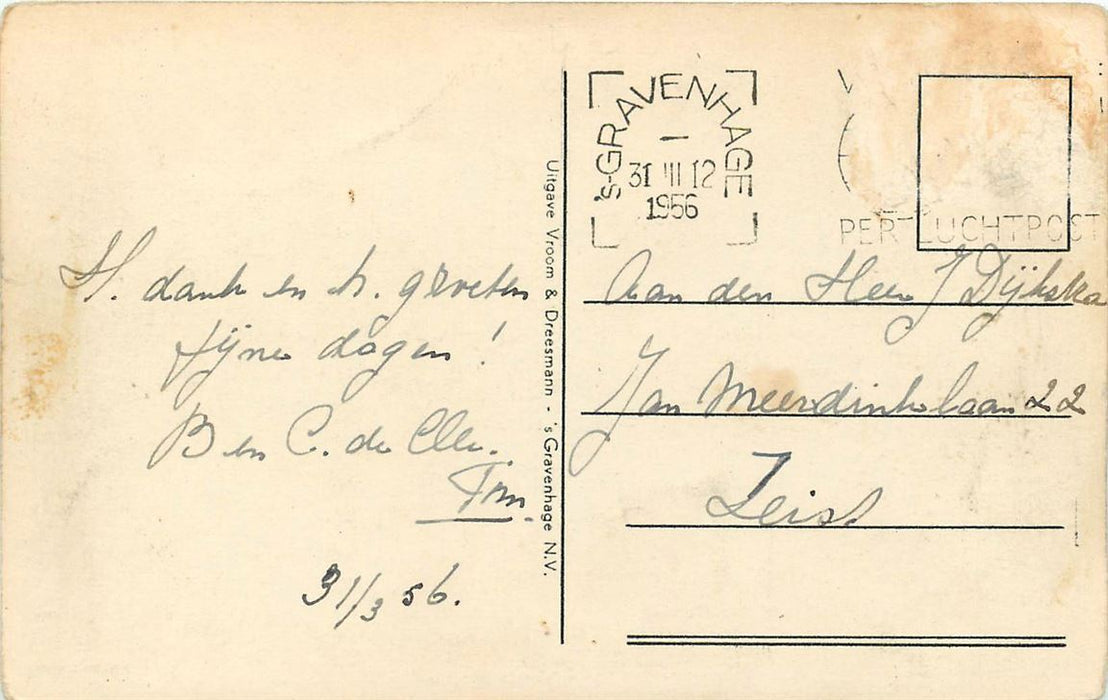 H. dank en h. groeten
fijne dagen!
B en C. de
Tom.
31/3 56.
Uitgave Vroom & Dreesmann - 's Gravenhage N.V.
's-GRAVENHAGE
31 III 12
1956
PER LUCHTPOST
Aan den Heer J Dijkstra
Jan Meerdinklaan 22
Zeist